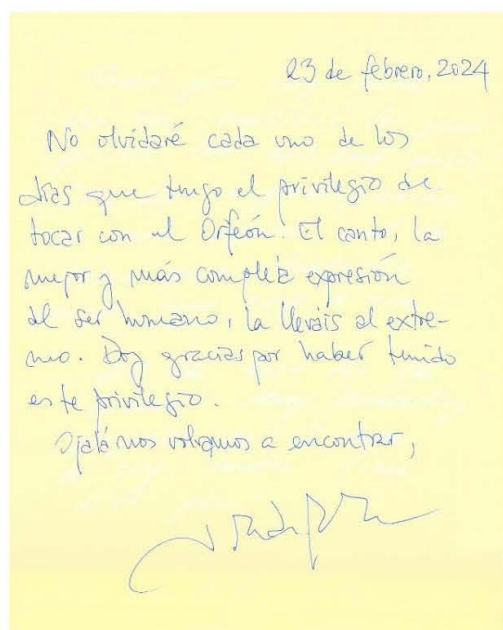 23 de febrero, 2024
No olvidaré cada uno de los
días que tengo el privilegio de
tocar con el Orfeón. El canto, la
mejor y más compleja expresión
del ser humano, la lleváis al extre-
mo. Doy gracias por haber tenido
este privilegio.
Ojalá nos volvamos a encontrar,